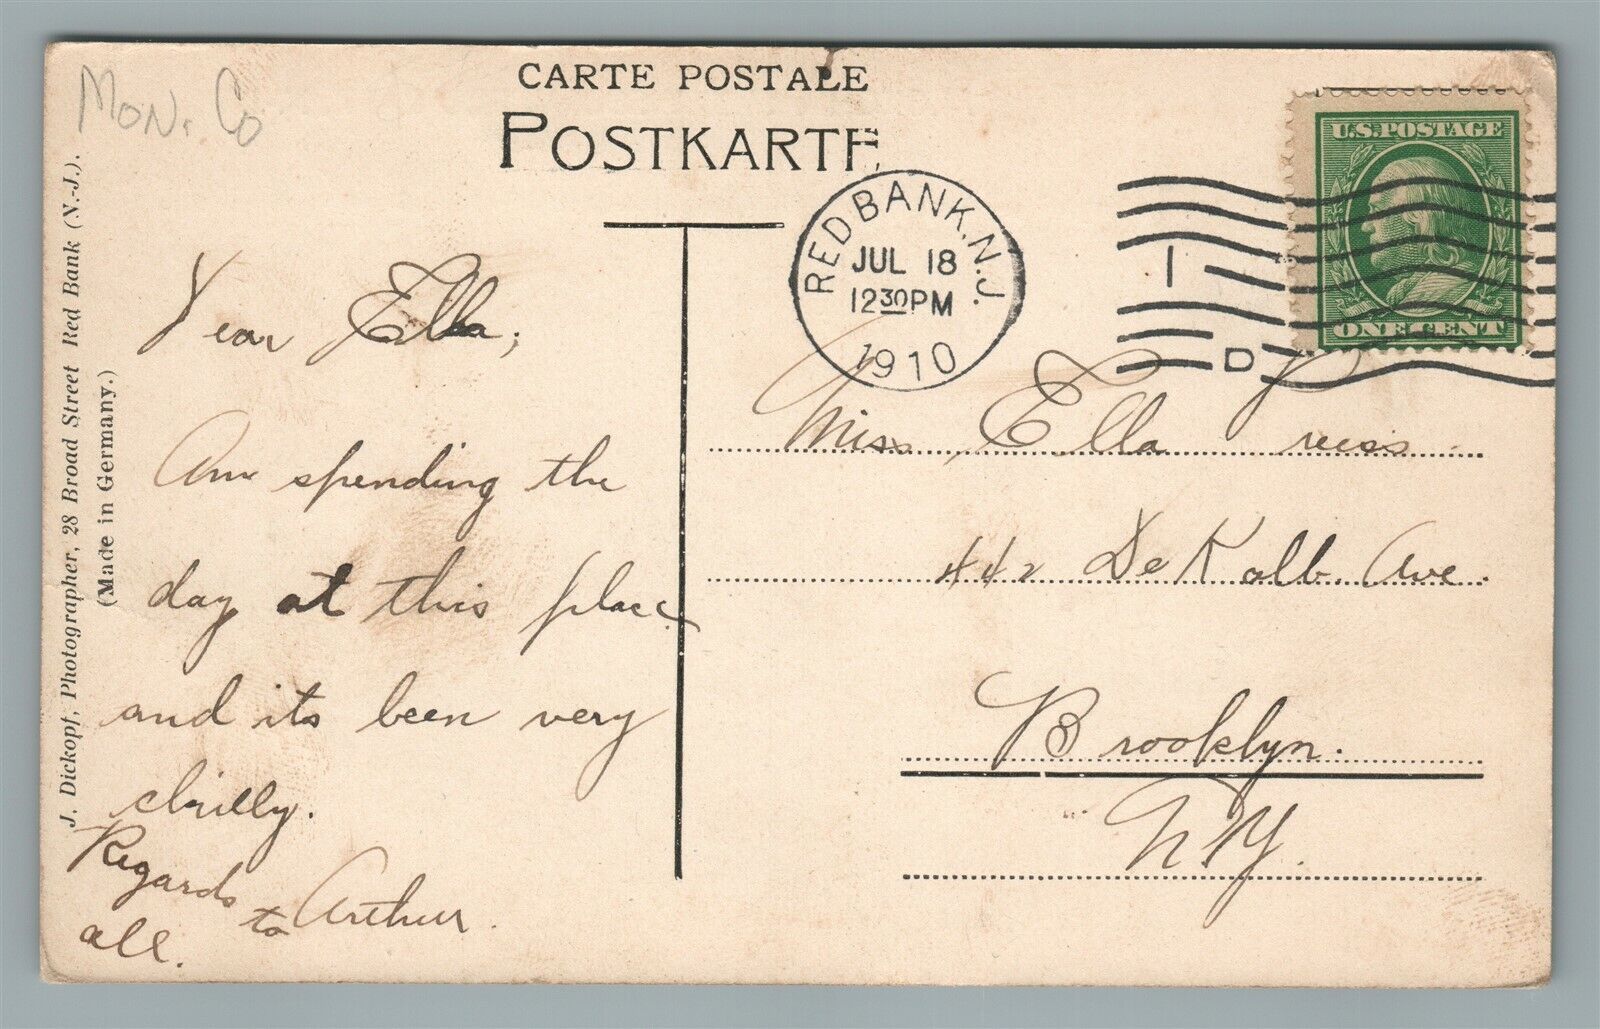 Mon. Co
CARTE POSTALE
POSTKARTE
U.S. POSTAGE
ONE CENT
RED BANK, N.J.
JUL 18
12 30 PM
1910
1
D
J. Dickopf, Photographer, 28 Broad Street Red Bank (N.-J.).
(Made in Germany.)
Dear Ella;
Am spending the
day at this place
and its been very
chilly.
Regards to
all.
Arthur.
Miss Ella
442 DeKalb. Ave.
Brooklyn.
N.Y.